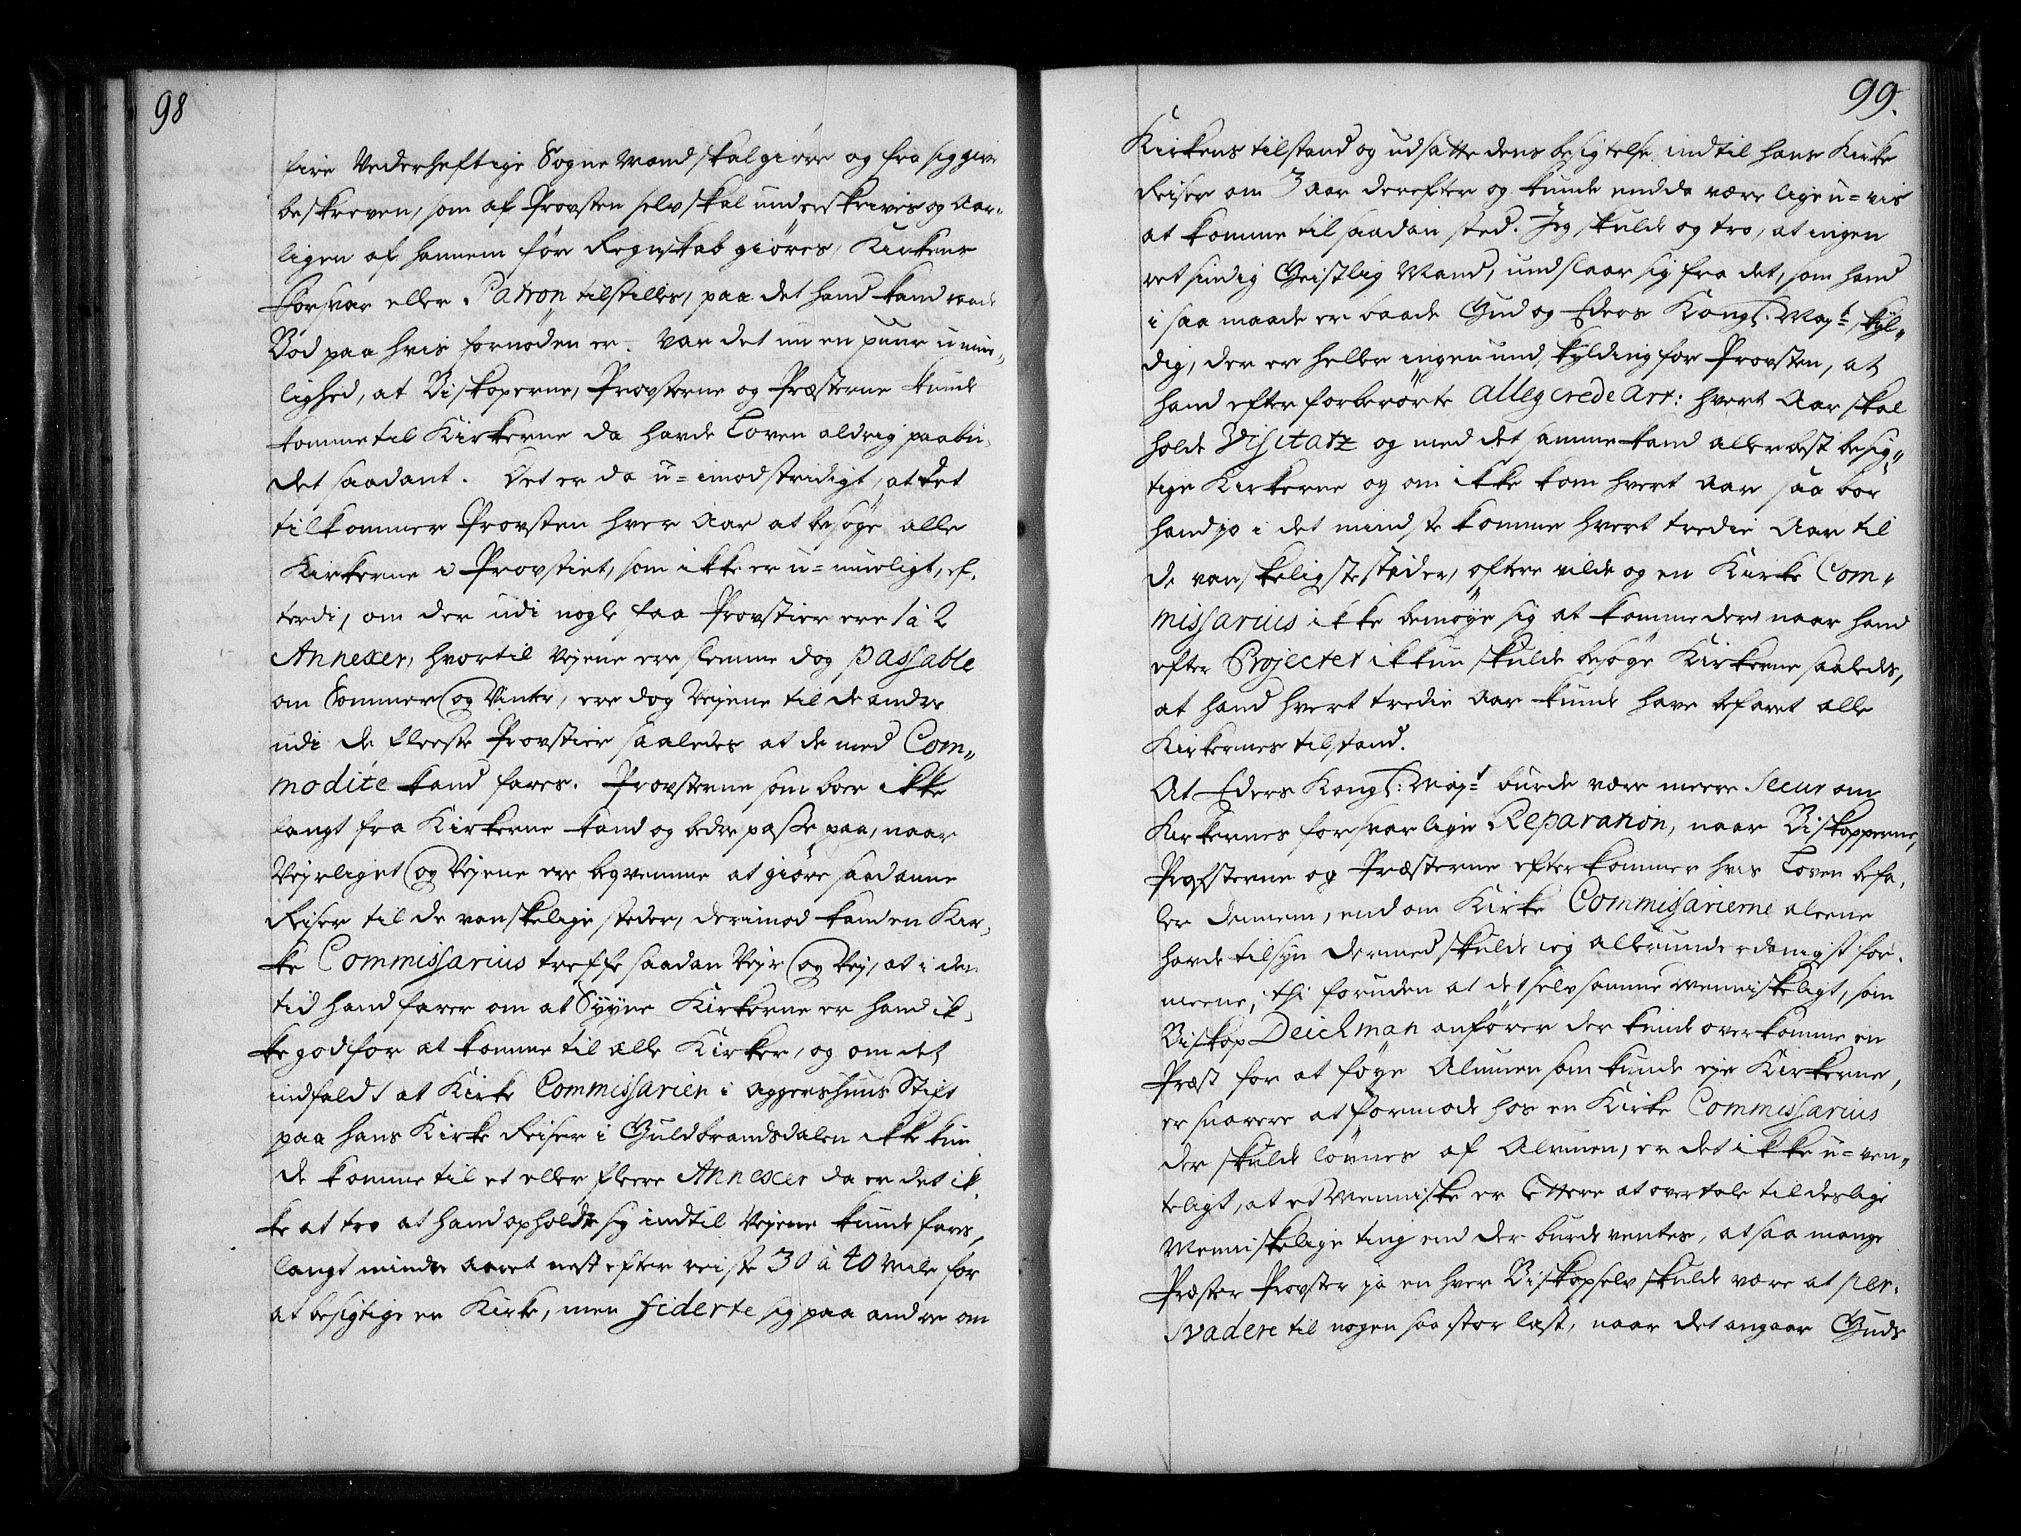 98
fire Vederheftige Sogne Mænd skal giøre og fra sig give
beskreven, som af Provsten selv skal underskrives og Aar-
ligen af hannem før Regnskab giøres, Kirkens
Forsvar eller Patron tilstilles, paa det hand kand raade
Bod paa hvis fornøden er. Var det nu en puur u-mue-
lighed, at Biskoperne, Provsterne og Præsterne kunde
komme til Kirkerne da hafde Loven aldrig paabu-
det saadant. Det er da u=imodstridigt, at det
tilkommer Provsten hver Aar at besøge alle
Kirkerne i Provstiet, som ikke er u=mueligt, ef-
terdi, om der udi nogle faa Provstier ere 1 à 2
Annexer, hvortil Vejene ere slemme dog passable
om Sommer og Vinter, ere dog Vejene til de andre
udi de fleeste Provstier saaledes at de med Com-
modite kand fares. Provsterne som boer ikke
langt fra Kirkerne kand og bedre passe paa, naar
Vejrliget og Vejene ere beqvemme at giøre saadanne
Reiser til de vanskelige steder, derimod kand en Kir-
ke Commissarius treffe saadan Vejr og Vej, at i den
tid hand farer om at Syyne Kirkerne er hand ik-
ke god for at komme til alle Kirker, og om det
indfaldt at Kirke Commissarien i Aggershuus Stift
paa hans Kirke Reiser i Guldbrandsdalen ikke kun-
de komme til et eller fleere Annexer da er det ik-
ke at tro at hand opholdte sig indtil Vejene kunde fares,
langt mindre Aaret nest efter reiste 30 à 40 Mile for
at besigtige en Kirke, men fiderte sig paa andre om
99.
Kirkens tilstand og udsatte dens besigtelse indtil hans Kirke
Reiser om 3 Aar derefter og kunde endda være lige u=vis
at komme til saadan sted. Jeg skulde og tro, at ingen
retsindig Geistlig Mand, undslaar sig fra det, som hand
i saa maade er baade Gud og Eders Kongl: May.t skyl-
dig, der er heller ingen undskylding for Provsten, at
hand efter forberørte allegerede Art: hvert Aar skal
holde Visitatz og med det samme kand allerbest besig-
tige Kirkerne og om ikke kom hvert Aar saa bør
hand jo i det mindste komme hvert tredie Aar til
de vanskeligste stæder, oftere vilde og en Kirke Com-
missarius ikke bemøye sig at komme der, naar hand
efter Projectet ikkun skulde besøge Kirkerne saaledes,
at hand hvert tredie Aar kunde have befaret alle
Kirkernes tilstand.
At Eders Kongl: May.t burde være meere Secur om
Kirkernes forsvarlige Reparation, naar Biskopperne,
Provsterne og Præsterne efterkommer hvis Loven befa-
ler dennem, end om Kirke Commissarierne aleene
hafde tilsyn dermed skulde jeg allerunderdanigst for-
meene, thi foruden at det selvsamme Menniskeligt, som
Biskop Deichman anfører der kunde overkomme en
Præst for at føye Almuen som kunde eje Kirkerne,
er snarere at formode hos en Kirke Commissarius
der skulde lønnes af Almuen, er det ikke u=ven-
teligt, at et Menniske er lettere at overtale til deslige
Menniskelige ting end der burde ventes, at saa mange
Præster Provster ja en hver Biskop selv skulde være at per-
svadere til nogen saa stor last, naar det angaar Guds